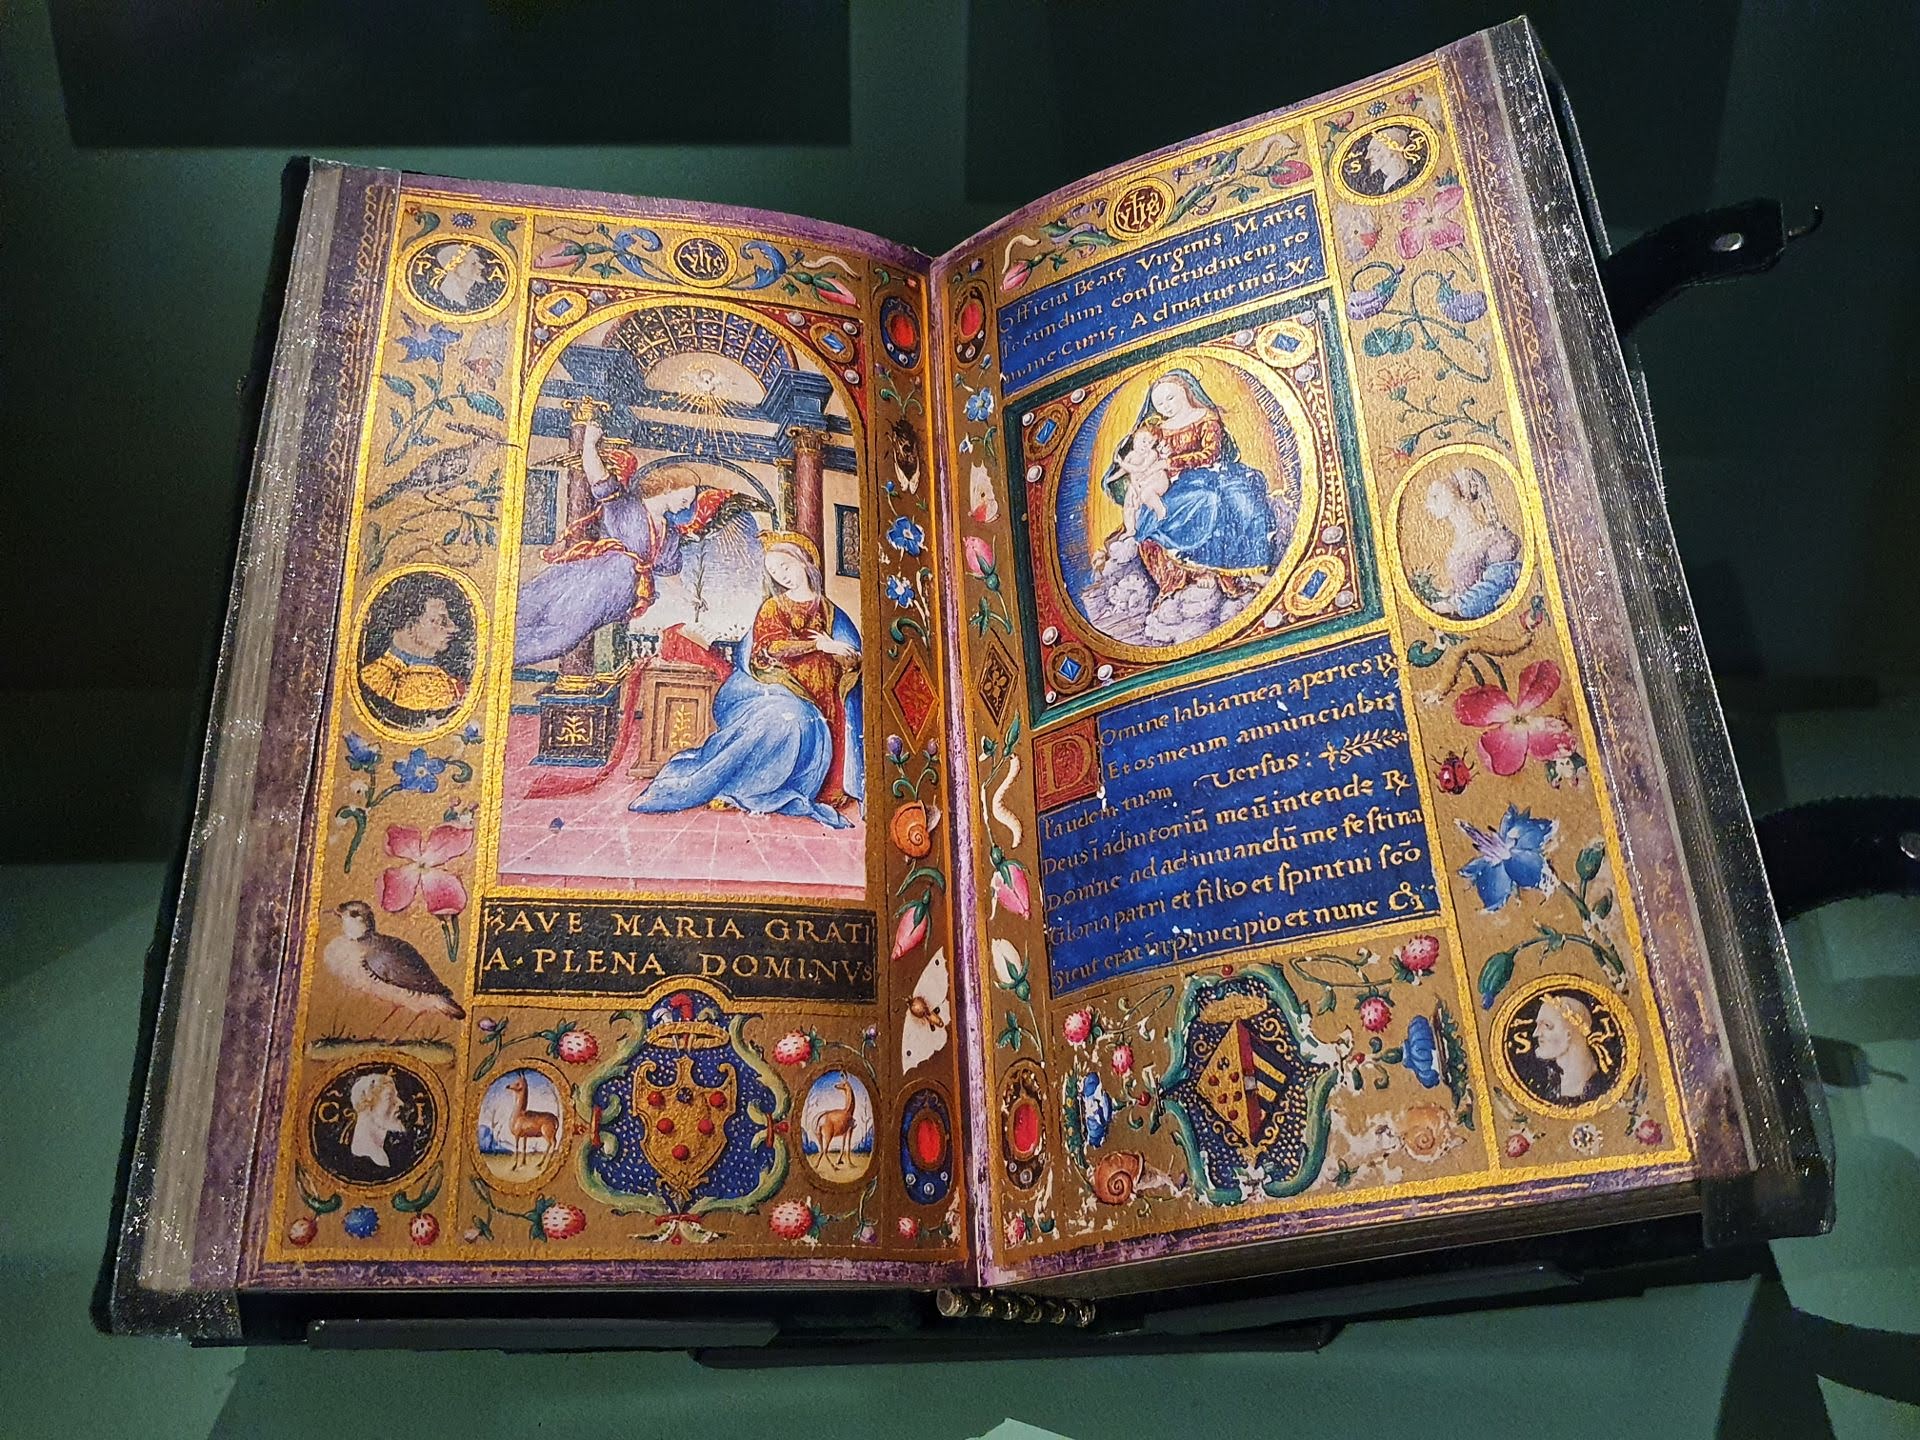 P A
yħs
AVE MARIA GRATI
A·PLENA DOMINVS
C I
yħs
S P
Officiū Beatę Virginis Marię
secundum consuetudinem ro
Admatutinū. V.
Domine labia mea aperies ℞
Et os meum annunciabit
laudem tuam Versus:
Deus ī adiutoriū meū intende ℞
Domine ad adiuuandū me festina
Gloria patri et filio et spiritui scō
Sicut erat in principio et nunc
S